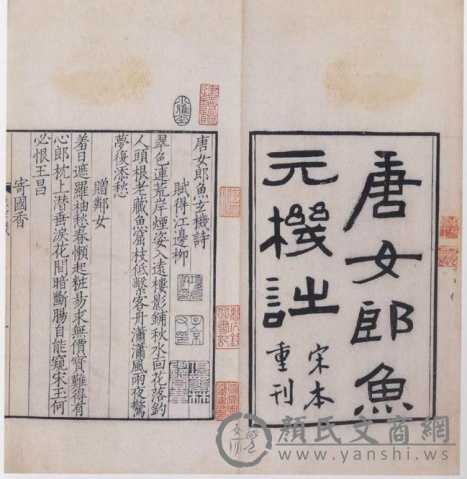 唐女郎魚
元機詩
宋本
重刊
唐女郎魚玄機詩
賦得江邊柳
翠色連荒岸煙姿入遠樓影鋪秋水面花落釣
人頭根老藏魚窟枝低繫客舟瀟瀟風雨夜驚
夢復添愁
贈鄰女
羞日遮羅袖愁春懶起粧易求無價寶難得有
心郎枕上潛垂淚花間暗斷腸自能窺宋玉何
必恨王昌
寄國香
顏氏文商網
www.yanshi.ws